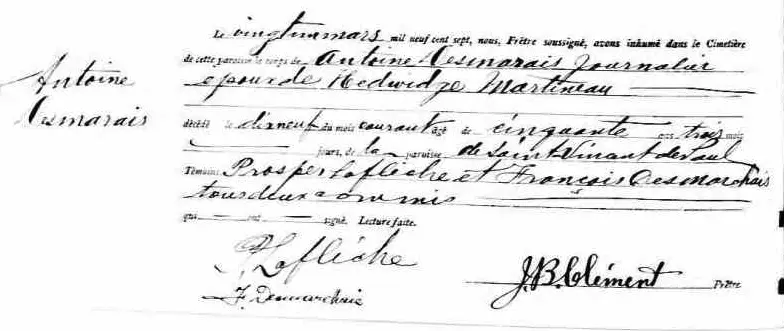 Antoine
Desmarais
Le vingtun mars mil neuf cent sept, nous, Prêtre soussigné, avons inhumé dans le Cimetière
de cette paroisse le corps de Antoine Desmarais Journalier
epoux de Hedwidge Martineau
décédé le dixneuf du mois courant agé de cinquante ans trois mois
jours, de la paroisse de Saint Vincent de Paul
Témoins Prosper Laflèche et François Desmarchais
tous deux
qui ont signé. Lecture faite.
P. Laflèche
F. Desmarchais
J. B. Clément Prêtre